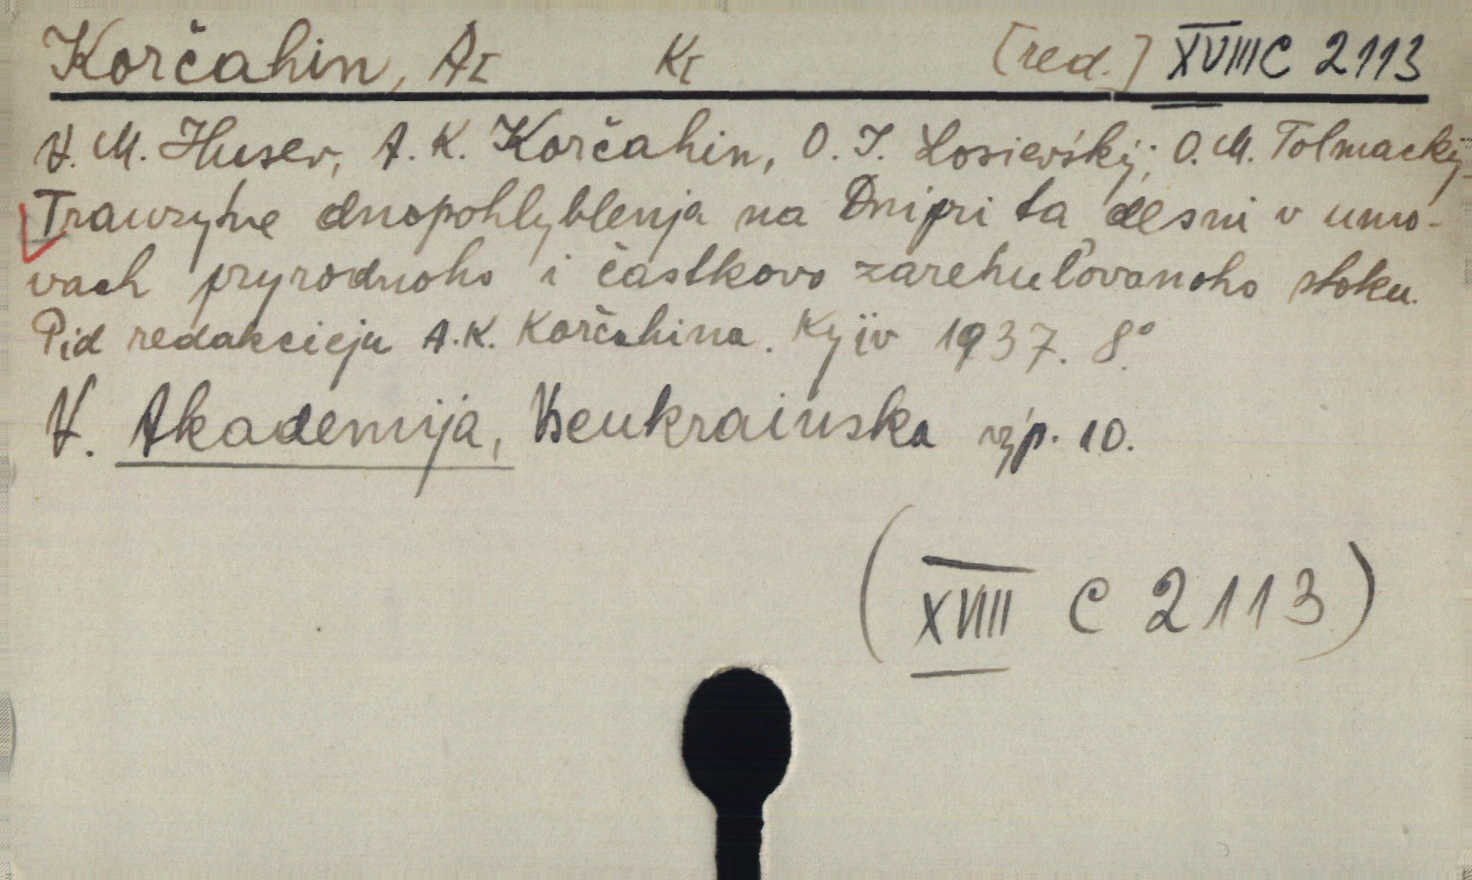 Korčahin, A[ K[ [red.] XVIII C 2113
V. M. Husev, A. K. Korčahin, O. I. Losievśkij, O. M. Tolmackij
Tranzytne dnopohlyblenja na Dnipri ta desni v umo-
vach pryrodnoho i častkovo zarehuľovanoho stoku.
Pid redakcieju A. K. Korčahina. Kyïv 1937. 8°.
V. Akademija, Vseukrainska vyp. 10.
(XVIII C 2113)